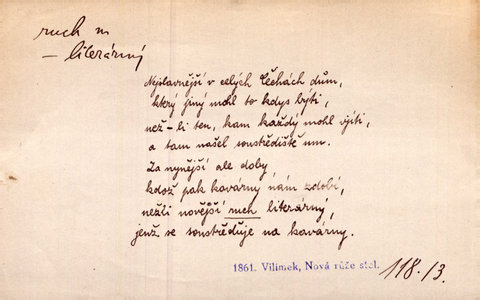 ruch m
– literárný
Nejslavnější v celých Čechách dům,
který jiný mohl to kdys býti,
než-li ten, kam každý mohl vjíti,
a tam našel soustřediště um.
Za nynější ale doby
kdož pak kavárny nám zdobí,
nežli novější ruch literárný,
jenž se soustřeďuje na kavárny.
1861. Vilímek, Nová růže stol. 118./3.